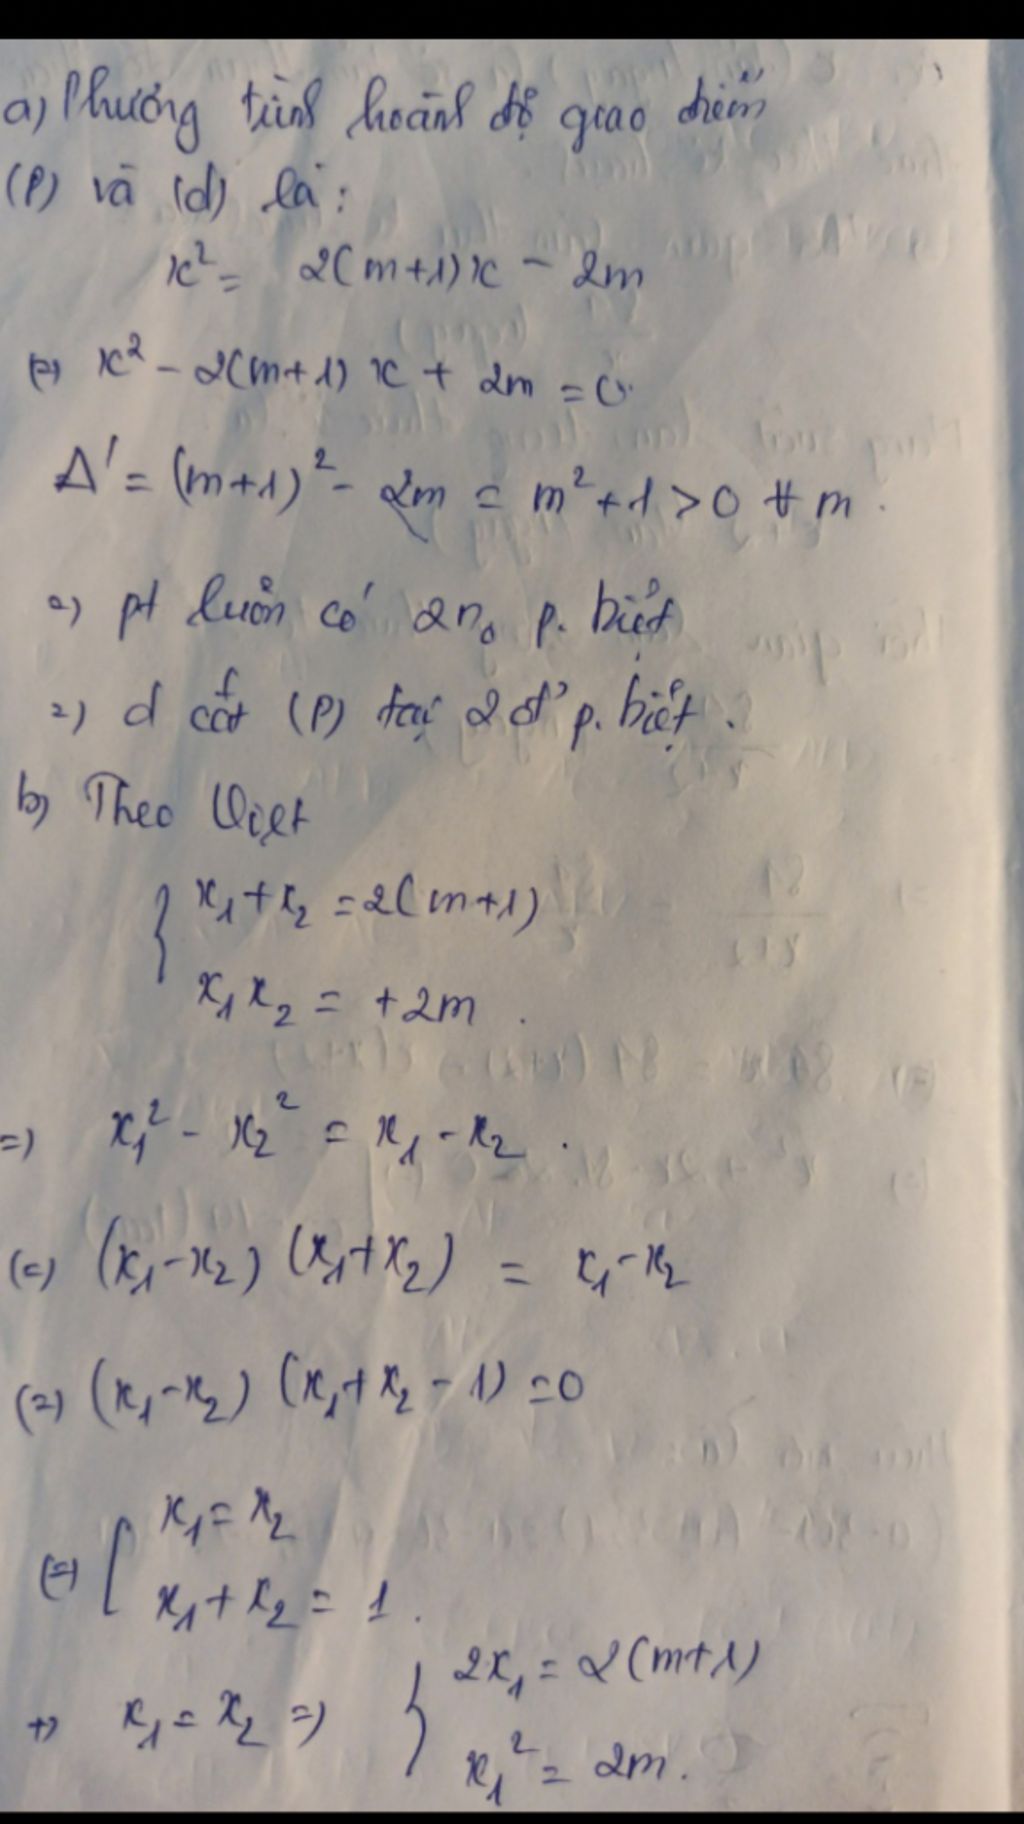 a) Phương trình hoành độ giao điểm
(P) và (d) là:
x² = 2(m+1)x - 2m
(=) x² - 2(m+1)x + 2m = 0.
Δ' = (m+1)² - 2m = m² + 1 > 0 ∀ m.
=) pt luôn có 2n₀ p. biệt
=) d cắt (P) tại 2 đ' p. biệt.
b) Theo Viet
{ x₁ + x₂ = 2(m+1)
x₁x₂ = +2m.
=) x₁² - x₂² = x₁ - x₂.
(=) (x₁ - x₂) (x₁ + x₂) = x₁ - x₂
(=) (x₁ - x₂) (x₁ + x₂ - 1) = 0
(=) [ x₁ = x₂
x₁ + x₂ = 1.
+) x₁ = x₂ =) { 2x₁ = 2(m+1)
x₁² = 2m.